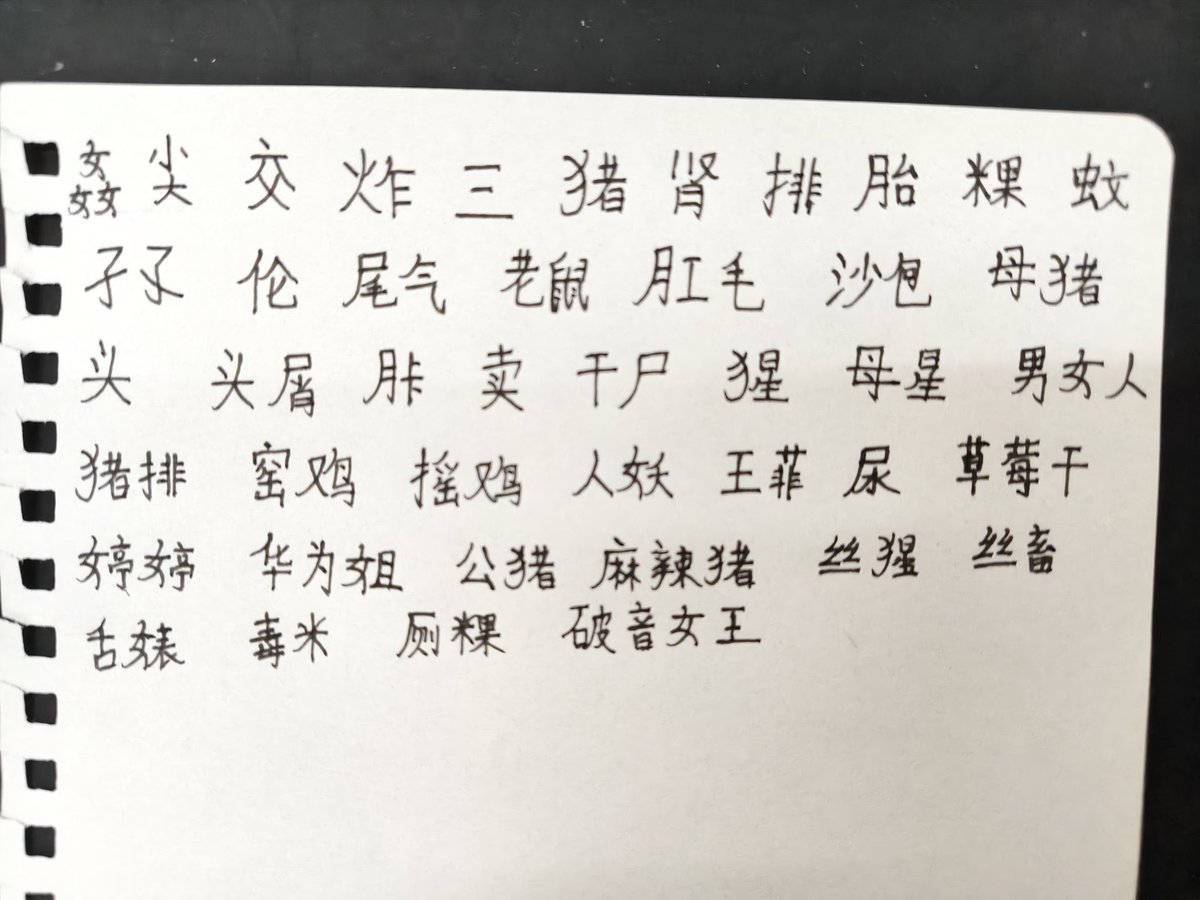 姦 尖 交 炸 三 猪 肾 排 胎 粿 蚊
孖 伦 尾气 老鼠 肛毛 沙包 母猪
头 头屑 胩 卖 干尸 猩 母星 男女人
猪排 窑鸡 摇鸡 人妖 王菲 尿 草莓干
婷婷 华为姐 公猪 麻辣猪 丝猩 丝畜
舌婊 毒米 厕粿 破音女王